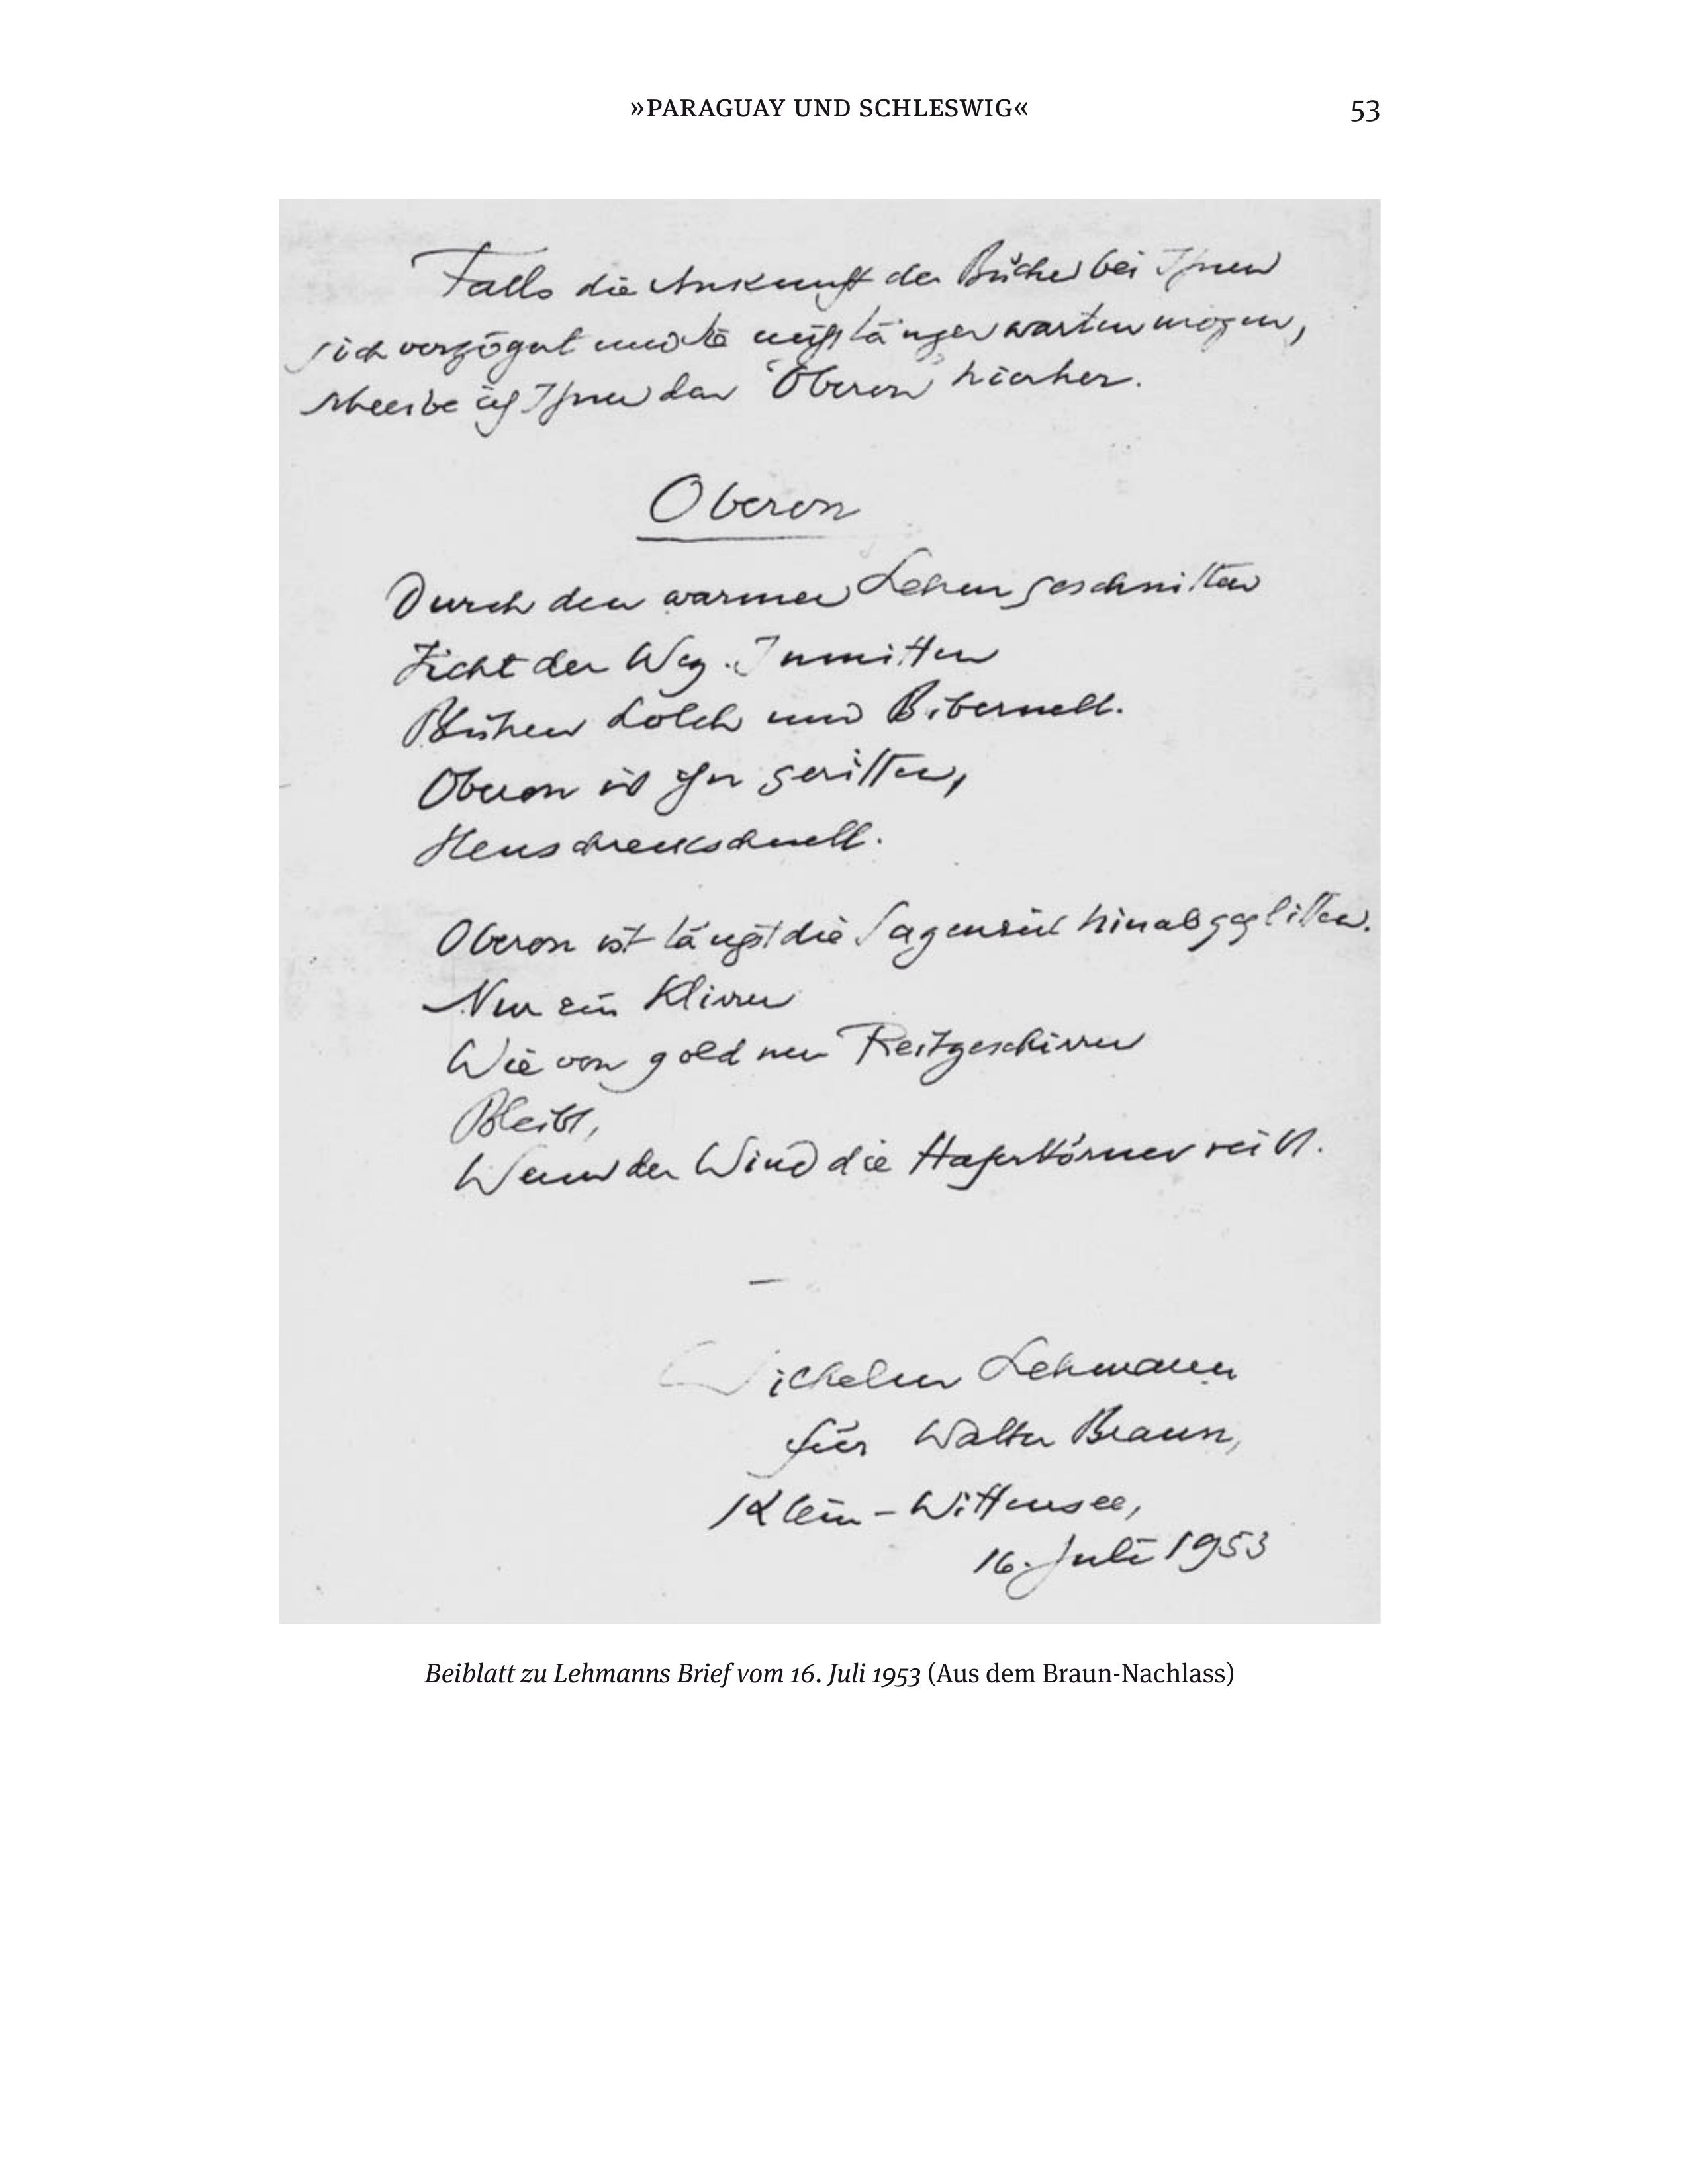 »PARAGUAY UND SCHLESWIG«
53
Falls die Ankunft der Bücher bei Ihnen
sich verzögert und Sie nicht länger warten mögen,
schreibe ich Ihnen den "Oberon" hierher.
Oberon
Durch den warmen Lehm geschnitten
Zieht der Weg. Inmitten
Blühen Lolch und Bibernell.
Oberon ist ihn geritten,
Heuschreckschnell.
Oberon ist längst die Sagenzeit hinabgeglitten.
Nur ein Klirren
Wie von goldnen Reitgeschirren
Bleibt,
Wenn der Wind die Haferkörner reibt.
—
Wilhelm Lehmann
für Walter Braun,
Klein-Wittensee,
16. Juli 1953
Beiblatt zu Lehmanns Brief vom 16. Juli 1953 (Aus dem Braun-Nachlass)